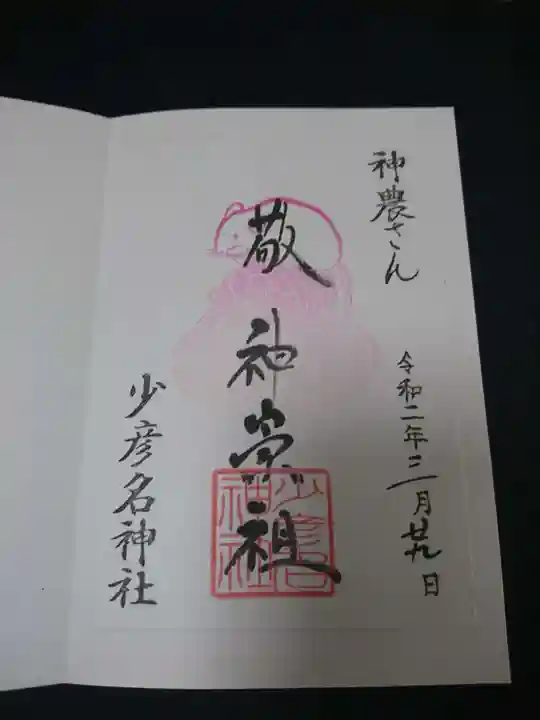 神農さん
令和二年三月廿九日
敬神崇祖
少彦名神社
少彦名神社